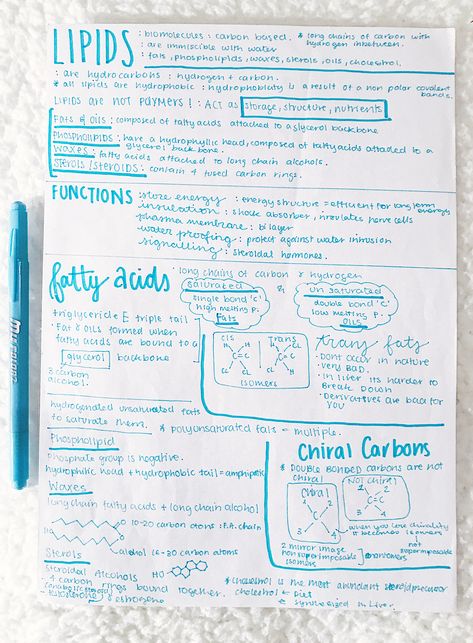 LIPIDS
: biomolecules : carbon based. * long chains of carbon with hydrogen inbetween.
: are immiscible with water
: fats, phospholipids, waxes, sterols, oils, cholestrol.
: are hydrocarbons : hydrogen + carbon.
* all lipids are hydrophobic : hydrophobiaty is a result of a non polar covalent bonds.
LIPIDS are not polymers! : ACT as storage, structure, nutrients
Fats & oils : composed of fatty acids attached to a glycerol backbone.
Phospholipids : have a hydrophyllic head, composed of fatty acids attatched to a glycerol back bone.
Waxes : fatty acids attached to long chain alcohols.
Sterols/steroids : contain 4 fused carbon rings.
FUNCTIONS
: store energy : energy structure = efficent for long term energy
insulation : shock absorber, insulates nerve cells
plasma membrane : bilayer
water proofing : protect against water intrusion
signalling : steroidal hormones.
fatty acids
: long chains of carbon & hydrogen
saturated
single bond 'c'
high melting p.
Fats
&
unsaturated
double bond 'c'
low melting p.
OILS
triglyceride E triple tail
• Fat & oils formed when
fatty acids are bound to a
glycerol backbone
3 carbon
alcohol.
Cis
H H
C=C
Cl Cl
Trans
H Cl
C=C
Cl H
isomers
trans fats
• Dont occur in nature
• very bad.
• in liver its harder to
Break Down
• Derivatives are bad for
you
hydrogenated unsaturated fats
to saturate them.
* polyunsaturated fats = multiple.
Phospholipid
phosphate group is negative.
hydrophilic head + hydrophobic tail = amphipatic
Waxes
long chain fatty acids + long chain alcohol
10-20 carbon atoms : F.A. chain
alcohol 16-30 carbon atoms
Chiral Carbons
* DOUBLE BONDED carbons are not
chiral
Chiral
1 2
C
3 4
NOT chiral
C=C
when you lose chirality
it becomes isomers
2 mirror image
non superimposable
isomers
not
superimposable
Sterols
steroidal Alcohols HO
4 carbon rings bound together.
* cholestrol is the most abundant steroid precursor
cholestrol ← diet
synthesized in Liver.